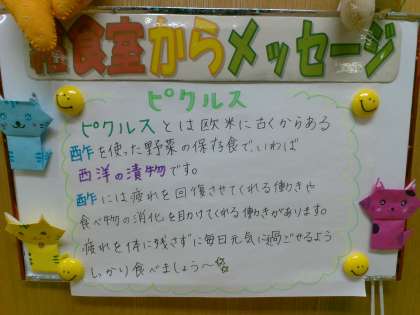 給食室からメッセージ
ピクルス
ピクルスとは欧米に古くからある
酢を使った野菜の保存食で、いわば
西洋の漬物です。
酢には疲れを回復させてくれる働きや
食べ物の消化を助けてくれる働きがあります。
疲れを体に残さずに毎日元気に過ごせるよう
しっかり食べましょう～☆